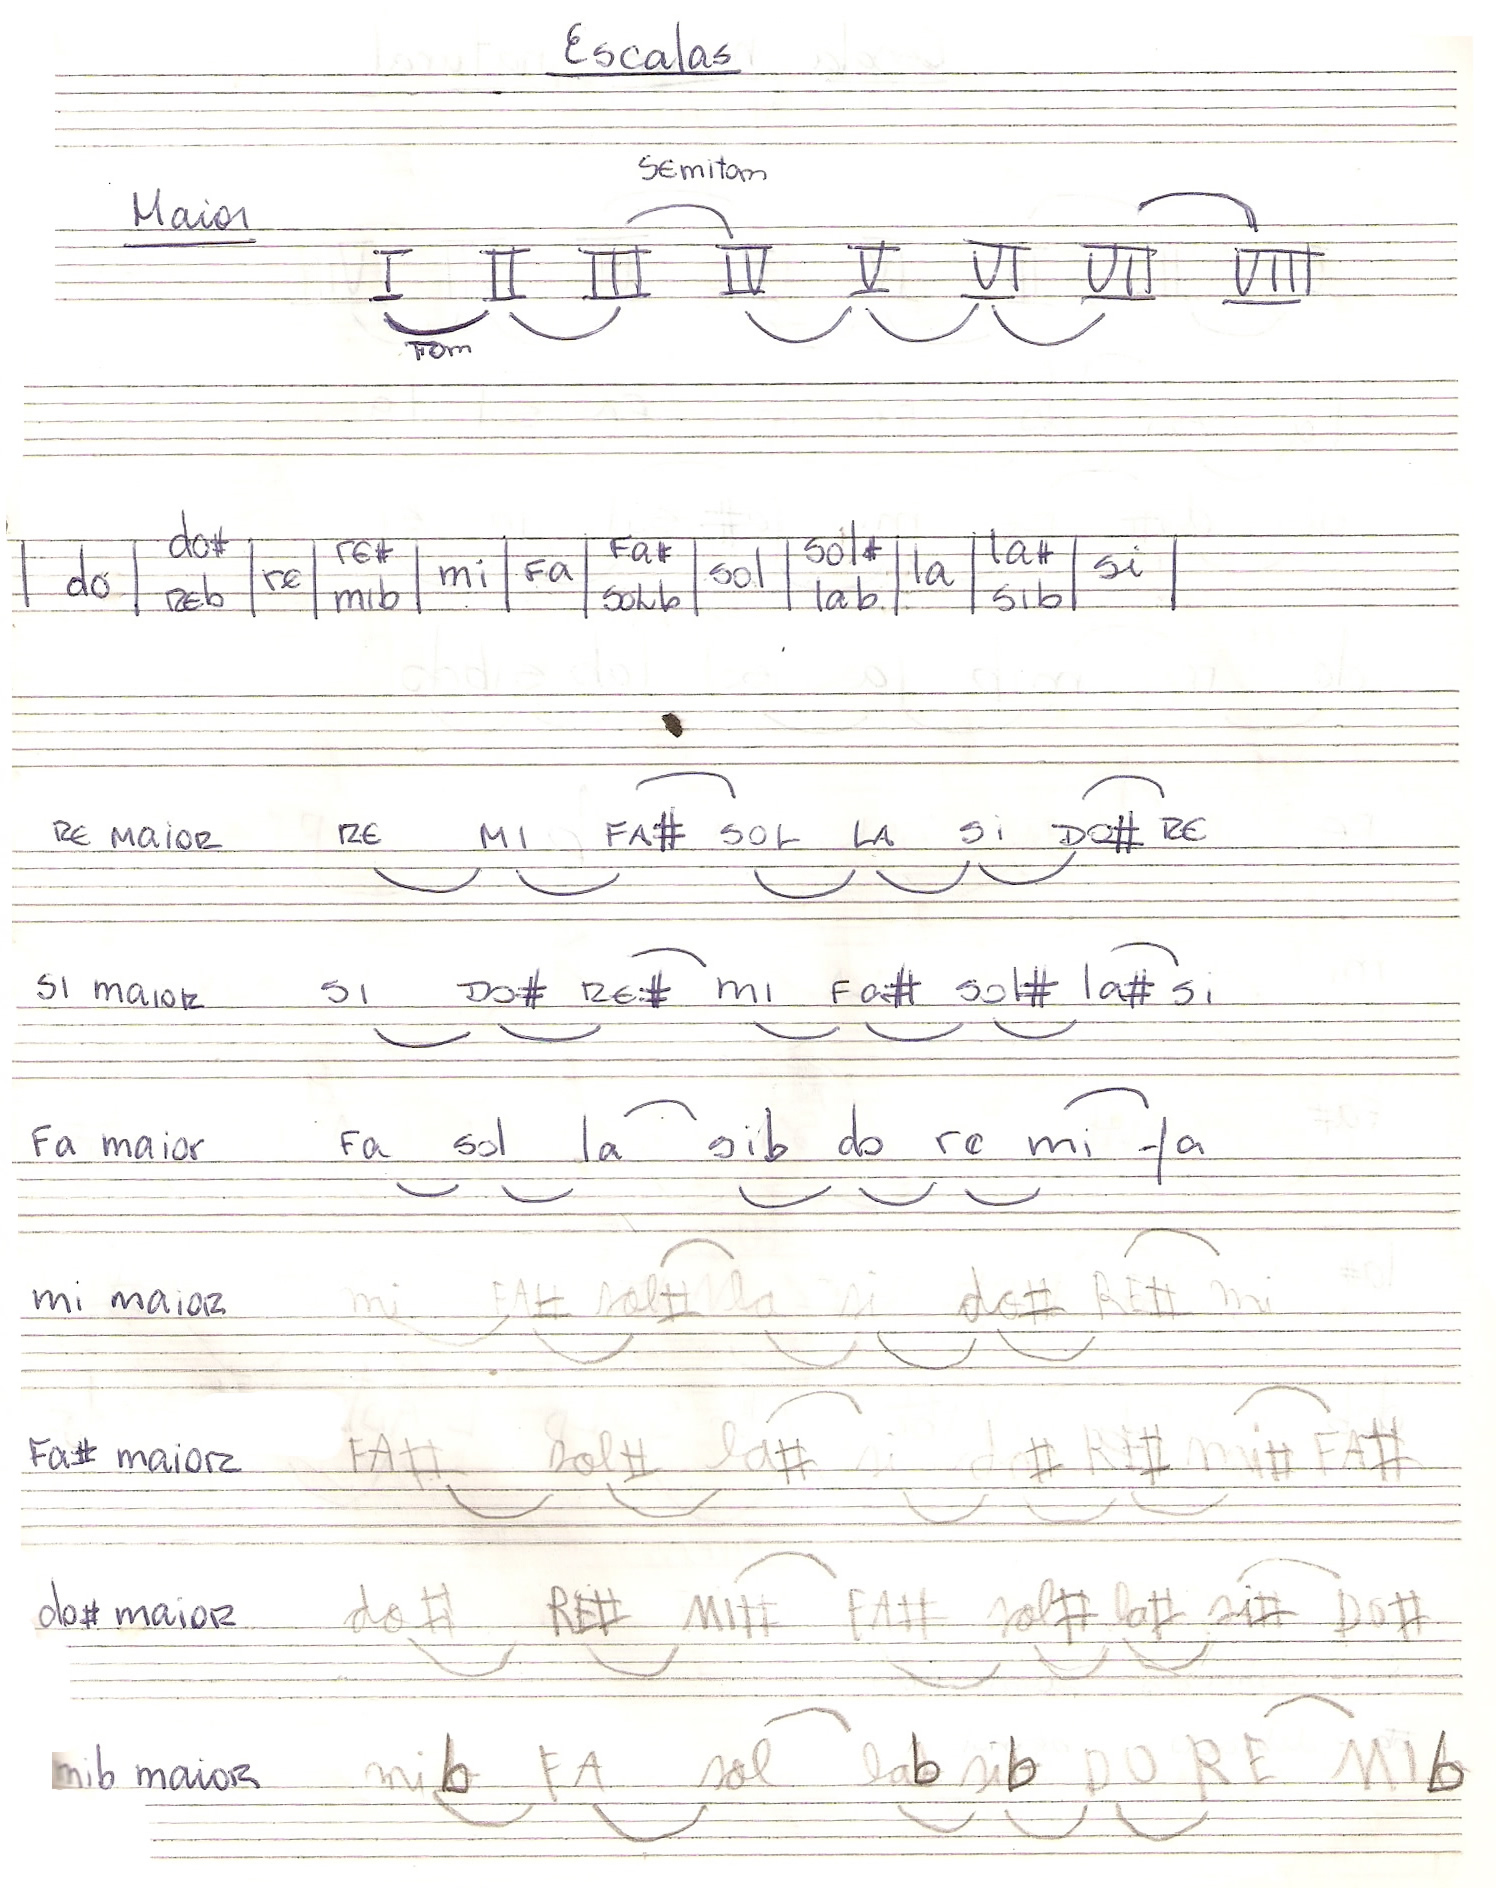 Escalas
semitom
Maior
I II III IV V VI VII VIII
Tom
do do# re re# mi Fa Fa# sol sol# la la# si
REb mib SOLb lab sib
RE MAIOR RE MI FA# SOL LA Si DO# RE
SI maioR SI DO# RE# mi Fa# sol# la# si
Fa maior Fa sol la sib do re mi fa
mi maioR mi FA# sol# la si do# RE# mi
Fa# maioR FA# sol# la# si do# RE# mi# FA#
do# maioR do# RE# MI# FA# sol# la# si# DO#
mib maioR mib FA sol lab sib DO RE MIb